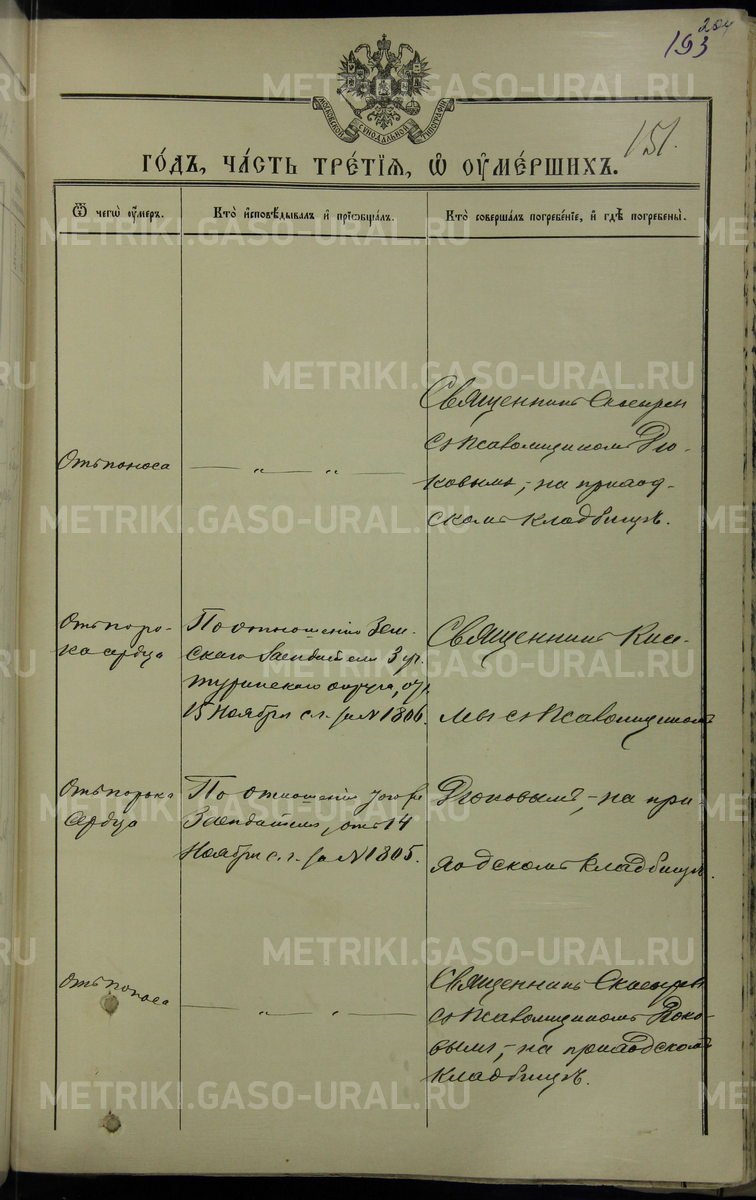 204
193
151.
МОСКОВСКОЙ СѴНОДАЛЬНОЙ ТИПОГРАФІИ
ГО́ДЪ, ЧА́СТЬ ТРЕ́ТІѦ, Ѡ҆ ОУ҆МЕ́РШИХЪ.
Ѿ чегѡ̀ оу҆́меръ.
Кто̀ и҆сповѣ́дывалъ и҆ прїѡбща́лъ.
Кто̀ соверша́лъ погребе́нїе, и҆ гдѣ̀ погребены̀.
Отъ поноса
— „ — „ —
Священникъ
съ Псаломщикомъ Дю-
ковымъ,- на приход-
скомъ кладбищѣ.
Отъ поро-
ка сердца
По отношенію Зем-
скаго Засѣдателя 3 уч.
туринскаго округа, отъ
15 Ноября с.г. за № 1806.
Священникъ Кисе-
лы съ Псаломщикомъ
Отъ порока
сердца
По отношенію того же
Засѣдателя, отъ 14
Ноября с. г. за № 1805.
Дюковымъ,- на при
ходскомъ кладбищѣ.
Отъ поноса
— „ — „ —
Священникъ
съ Псаломщикомъ Дюко-
вымъ,- на приходскомъ
кладбищѣ.
METRIKI.GASO-URAL.RU